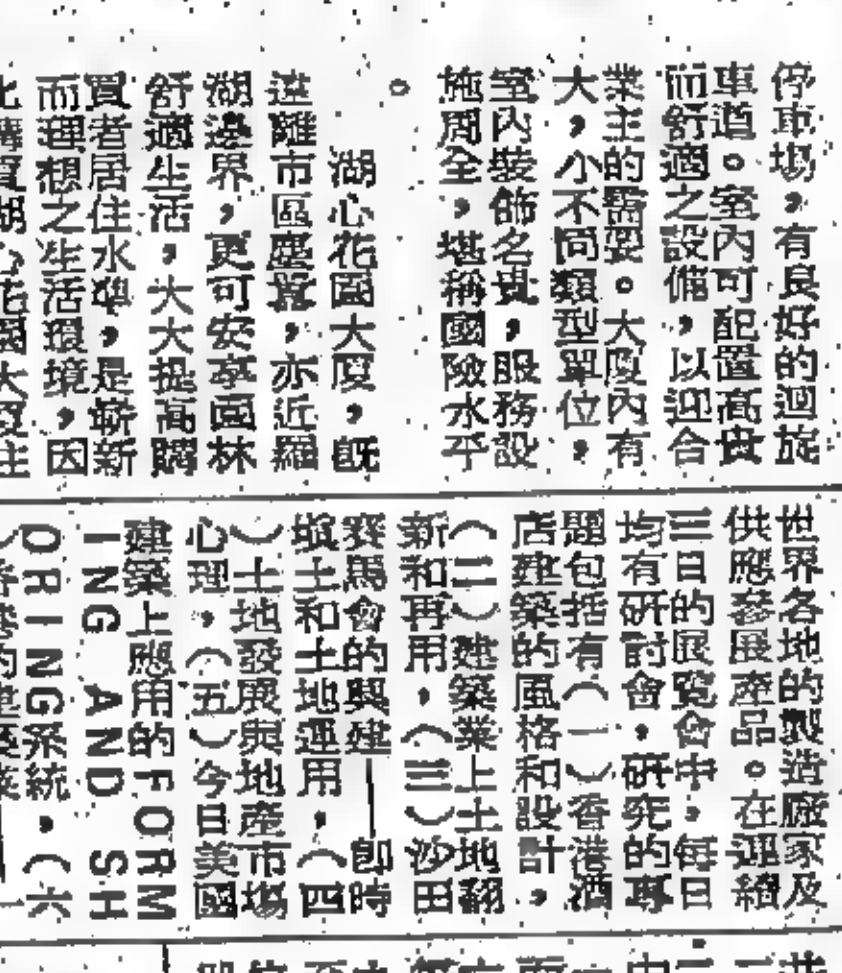 停車場，有良好的迴旋
車道。室內可配置高貴
而舒適之設備，以迎合
業主的需要。大廈內有
大，小不同類型單位，
室內裝飾名貴，服務設
施周全，堪稱國險水平
。
湖心花園大廈，既
遠離市區塵囂，亦近羅
湖邊界，更可安享園林
舒適生活，大大提高購
買者居住水準，是嶄新
而理想之生活環境，因
世界各地的製造廠家及
供應參展產品。在連續
三日的展覽會中，每日
均有研討會，研究的專
題包括有（一）香港酒
店建築的風格和設計，
（二）建築業上土地翻
新和再用，（三）沙田
賽馬會的興建——即時
填土和土地運用，（四
）土地發展與地產市場
心理，（五）今日美國
建築上應用的FORM
ING AND SH
ORING系統，（六